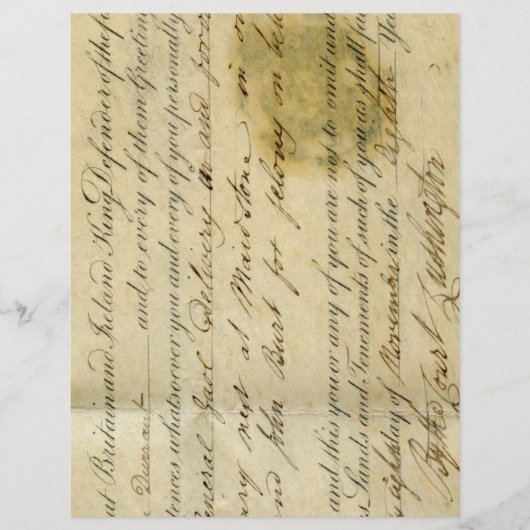 at Britain and Ireland King Defender of the f
Durrant and to every of them Greeting
tences whatsoever you and every of you personally
eneral Gaol Delivery in and for o
ary next at Maidstone in o
nd John Burt for felony on bel
and this you or any of you are not to omit und
s Lands and Tenements of such of you as shall fai
day of November in the Eighth Ye
By the Court Lushington